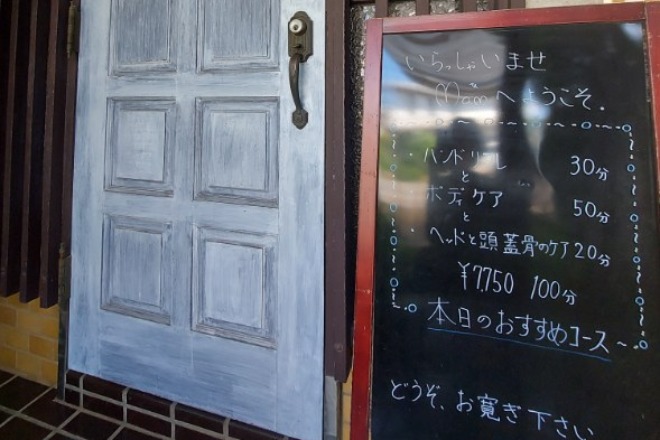 いらっしゃいませ
Mamへようこそ。
・ハンドリフレ 30分
と
・ボディケア 50分
と
・ヘッドと頭蓋骨のケア20分
¥7750 100分
本日のおすすめコース
どうぞ、お寛ぎ下さい